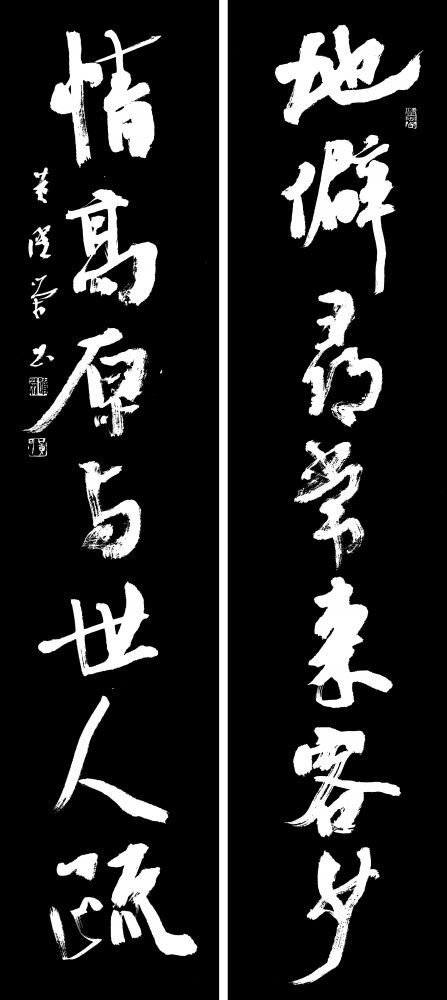 地僻尋常来客少
情高原与世人疏